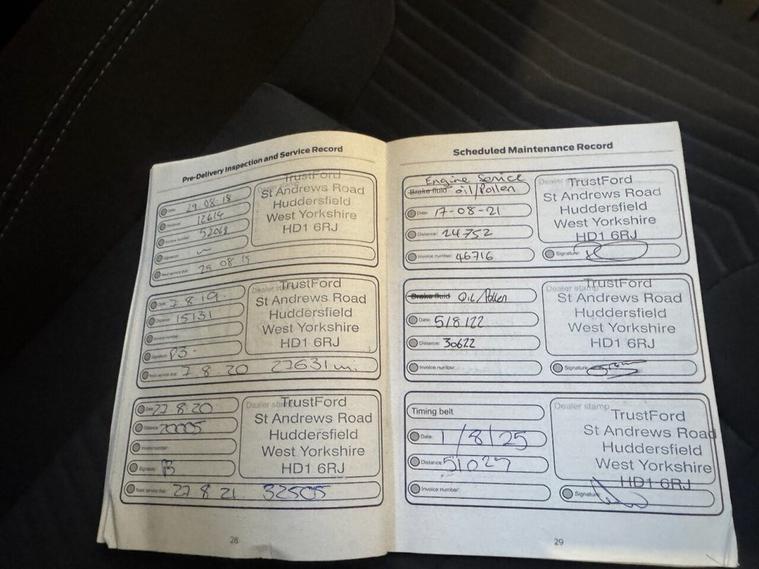 Pre-Delivery Inspection and Service Record
Date: 29.08.18
Distance: 12614
Invoice number: 52068
Signature:
Next service due: 28 08 19
TrustFord
St Andrews Road
Huddersfield
West Yorkshire
HD1 6RJ
Date: 2 8 19.
Distance: 15131
Invoice number:
Signature: P3
Next service due: 2 8 20 27631 m.
Dealer stamp
TrustFord
St Andrews Road
Huddersfield
West Yorkshire
HD1 6RJ
Date: 22 8 20
Distance: 20005
Invoice number:
Signature:
Next service due: 22 8 21 32505
Dealer stamp
TrustFord
St Andrews Road
Huddersfield
West Yorkshire
HD1 6RJ
28
Scheduled Maintenance Record
Engine Service
Brake fluid Oil/Pollen
Date: 17-08-21
Distance: 24752
Invoice number: 46716
Dealer stamp
TrustFord
St Andrews Road
Huddersfield
West Yorkshire
HD1 6RJ
Signature:
Brake fluid Oil/Pollen
Date: 5/8/22
Distance: 30622
Invoice number:
Dealer stamp
TrustFord
St Andrews Road
Huddersfield
West Yorkshire
HD1 6RJ
Signature:
Timing belt
Date: 1/8/25
Distance: 51027
Invoice number:
Dealer stamp
TrustFord
St Andrews Road
Huddersfield
West Yorkshire
HD1 6RJ
Signature:
29